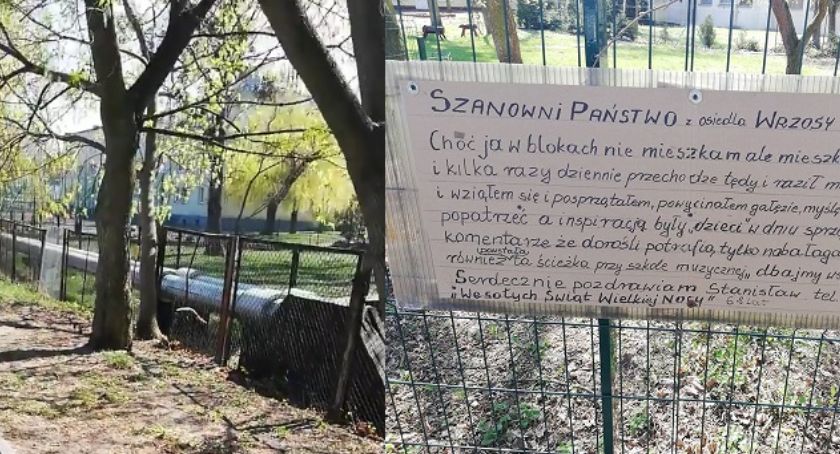 SZANOWNI PAŃSTWO z osiedla WRZOSY
Choć ja w blokach nie mieszkam ale mieszk
i kilka razy dziennie przechodzę tędy i raził m
i wziąłem się i posprzątałem, powycinałem gałęzie, myślę
popatrzeć a inspiracją były „dzieci w dniu sprzą
komentarze że dorośli potrafią tylko nabałaga
powstała
również ta ścieżka przy szkole muzycznej„ dbajmy o
Serdecznie pozdrawiam Stanisław tel
„Wesołych Świąt Wielkiej Nocy" 68 lat